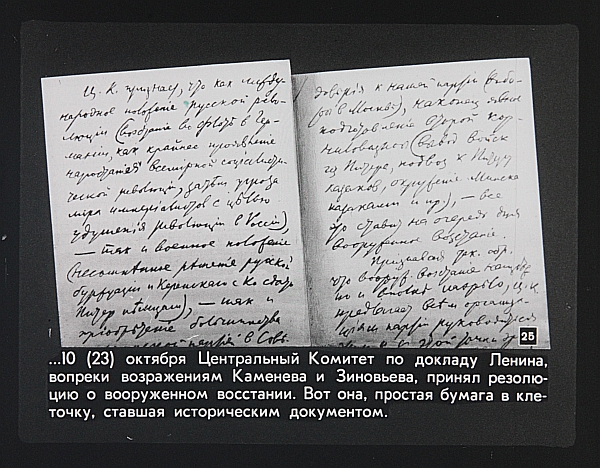 Ц. К. признает, что как между-
народное положение русской рево-
люции (восстание во флоте в Гер-
мании, как крайнее проявление
нарастания всемирной социалисти-
ческой революции, затем угроза
мира империалистов с целью
удушения революции в России),
— так и военное положение
(несомненное решение русской
буржуазии и Керенского с Ко сдать
Питер немцам), — так и
приобретение большинства
партией в Сове-
доверия к нашей партии (выбо-
ры в Москве), наконец явное
подготовление второй кор-
ниловщины (вывод войск
из Питера, подвоз к Питеру
казаков, окружение Минска
казаками и пр.), — все
это ставит на очередь дня
вооруженное восстание.
Признавая так. обр.,
что вооруж. восстание неизбеж-
но и вполне назрело, Ц. К.
предлагает всем организа-
циям партии руководиться
этой точки
25
...10 (23) октября Центральный Комитет по докладу Ленина,
вопреки возражениям Каменева и Зиновьева, принял резолю-
цию о вооруженном восстании. Вот она, простая бумага в кле-
точку, ставшая историческим документом.